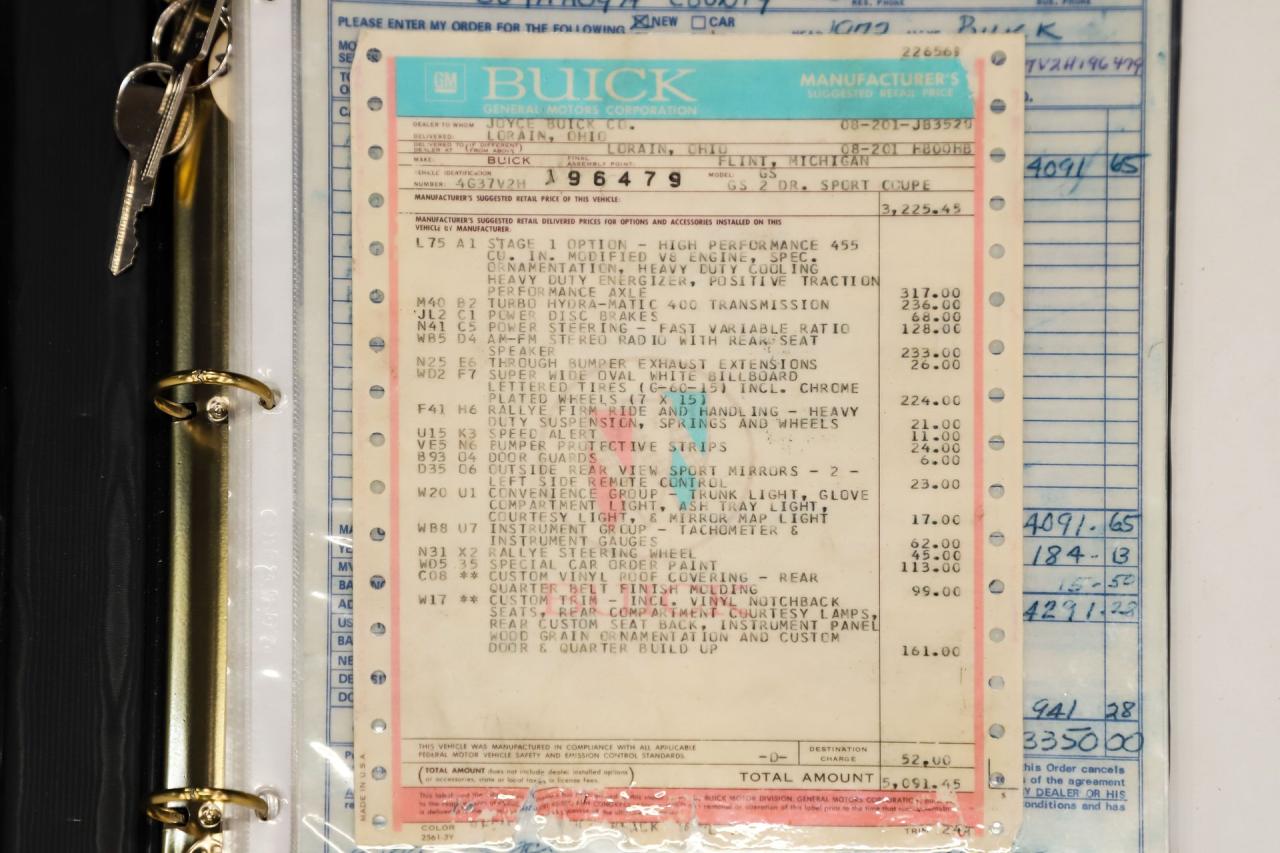 PLEASE ENTER MY ORDER FOR THE FOLLOWING ☒ NEW ☐ CAR 1972 BUICK
226568
GM BUICK MANUFACTURER'S
GENERAL MOTORS CORPORATION SUGGESTED RETAIL PRICE
DEALER TO WHOM DELIVERED: JOYCE BUICK CO. 08-201-JB3529
LORAIN, OHIO
DELIVERED TO (IF DIFFERENT DEALER AT FROM ABOVE) LORAIN, OHIO 08-201 HB00HB
MAKE: BUICK FINAL ASSEMBLY POINT: FLINT, MICHIGAN
VEHICLE IDENTIFICATION NUMBER: 4G37V2H 196479 MODEL: GS
GS 2 DR. SPORT COUPE
MANUFACTURER'S SUGGESTED RETAIL PRICE OF THIS VEHICLE: 3,225.45
MANUFACTURER'S SUGGESTED RETAIL DELIVERED PRICES FOR OPTIONS AND ACCESSORIES INSTALLED ON THIS
VEHICLE BY MANUFACTURER:
L75 A1 STAGE 1 OPTION - HIGH PERFORMANCE 455
CU. IN. MODIFIED V8 ENGINE, SPEC.
ORNAMENTATION, HEAVY DUTY COOLING
HEAVY DUTY ENERGIZER, POSITIVE TRACTION
PERFORMANCE AXLE 317.00
M40 B2 TURBO HYDRA-MATIC 400 TRANSMISSION 236.00
JL2 C1 POWER DISC BRAKES 68.00
N41 C5 POWER STEERING - FAST VARIABLE RATIO 128.00
WB5 D4 AM-FM STEREO RADIO WITH REAR SEAT
SPEAKER 233.00
N25 E6 THROUGH BUMPER EXHAUST EXTENSIONS 26.00
WD2 F7 SUPER WIDE OVAL WHITE BILLBOARD
LETTERED TIRES (G-60-15) INCL. CHROME
PLATED WHEELS (7 X 15) 224.00
F41 H6 RALLYE FIRM RIDE AND HANDLING - HEAVY
DUTY SUSPENSION, SPRINGS AND WHEELS 21.00
U15 K3 SPEED ALERT 11.00
VE5 N6 BUMPER PROTECTIVE STRIPS 24.00
B93 O4 DOOR GUARDS 6.00
D35 O6 OUTSIDE REAR VIEW SPORT MIRRORS - 2 -
LEFT SIDE REMOTE CONTROL 23.00
W20 U1 CONVENIENCE GROUP - TRUNK LIGHT, GLOVE
COMPARTMENT LIGHT, ASH TRAY LIGHT,
COURTESY LIGHT, & MIRROR MAP LIGHT 17.00
WB8 U7 INSTRUMENT GROUP - TACHOMETER &
INSTRUMENT GAUGES 62.00
N31 X2 RALLYE STEERING WHEEL 45.00
W05 35 SPECIAL CAR ORDER PAINT 113.00
C08 ** CUSTOM VINYL ROOF COVERING - REAR
QUARTER BELT FINISH MOLDING 99.00
W17 ** CUSTOM TRIM - INCL. VINYL NOTCHBACK
SEATS, REAR COMPARTMENT COURTESY LAMPS,
REAR CUSTOM SEAT BACK, INSTRUMENT PANEL
WOOD GRAIN ORNAMENTATION AND CUSTOM
DOOR & QUARTER BUILD UP 161.00
THIS VEHICLE WAS MANUFACTURED IN COMPLIANCE WITH ALL APPLICABLE
FEDERAL MOTOR VEHICLE SAFETY AND EMISSION CONTROL STANDARDS. -0- DESTINATION CHARGE 52.00
(TOTAL AMOUNT does not include dealer installed options
or accessories, state or local taxes or license fees.) TOTAL AMOUNT 5,091.45
BUICK MOTOR DIVISION, GENERAL MOTORS
COLOR BLACK TRIM
2561-3Y
MADE IN U.S.A.
4091 65
4091.65
184-13
15-50
4291.28
941 28
3350 00
this Order cancels
of the agreement
DEALER OR HIS
onditions and has